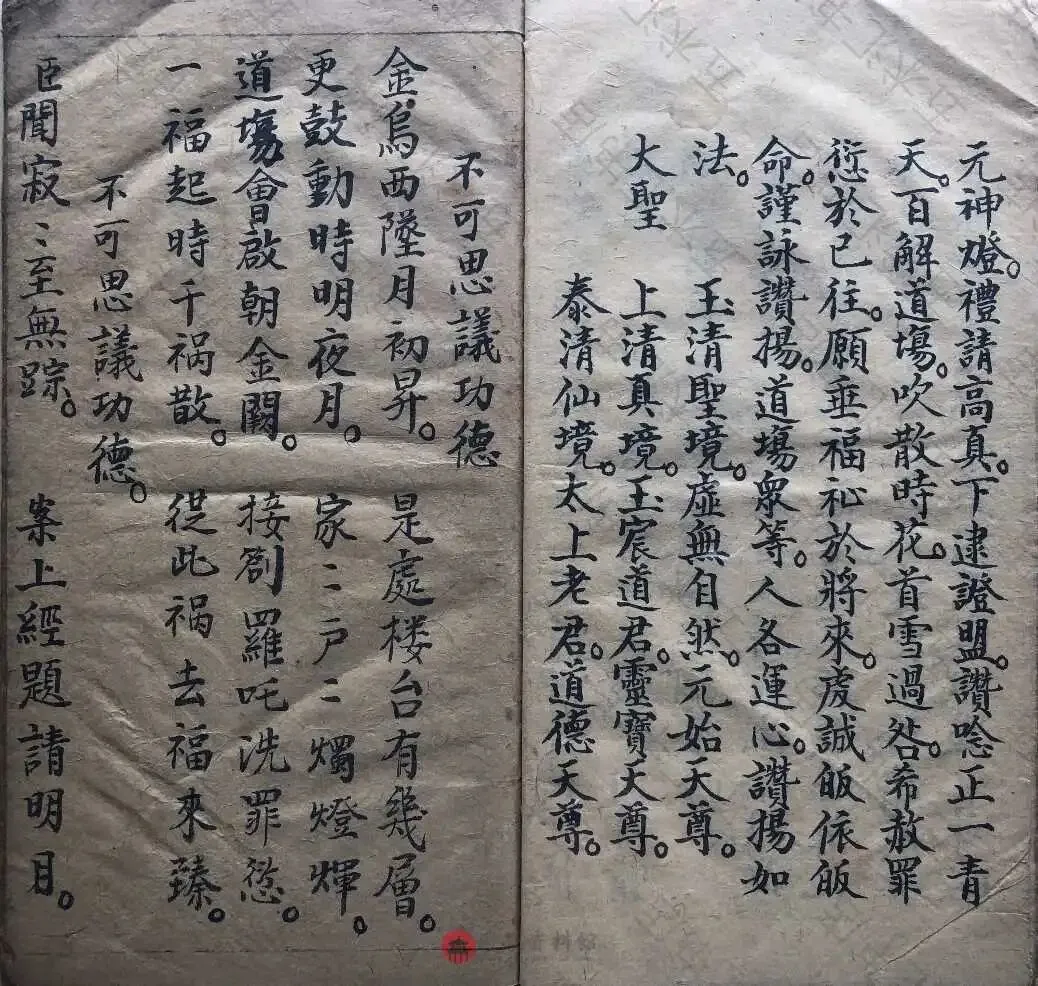 元神燈。禮請高真。下逮證盟。讚唸正一青
天。百解道塲。吹散時花。首雪過咎。希赦罪
愆於已往。願垂福祉於將來。虔誠皈依皈
命。謹詠讚揚。道塲衆等。人各運心。讚揚如
法。
玉清聖境。虛無自然。元始天尊。
大聖 上清真境。玉宸道君。靈寶天尊。
泰清仙境。太上老君。道德天尊。
不可思議功德
金烏西墜月初昇。是處楼台有幾層。
更鼓動時明夜月。家〻戸〻燭燈輝。
道塲會啟朝金闕。接劄羅吒洗罪愆。
一福起時千祸散。從此祸去福來臻。
不可思議功德。
臣聞寂〻至無踪。案上經題請明月。